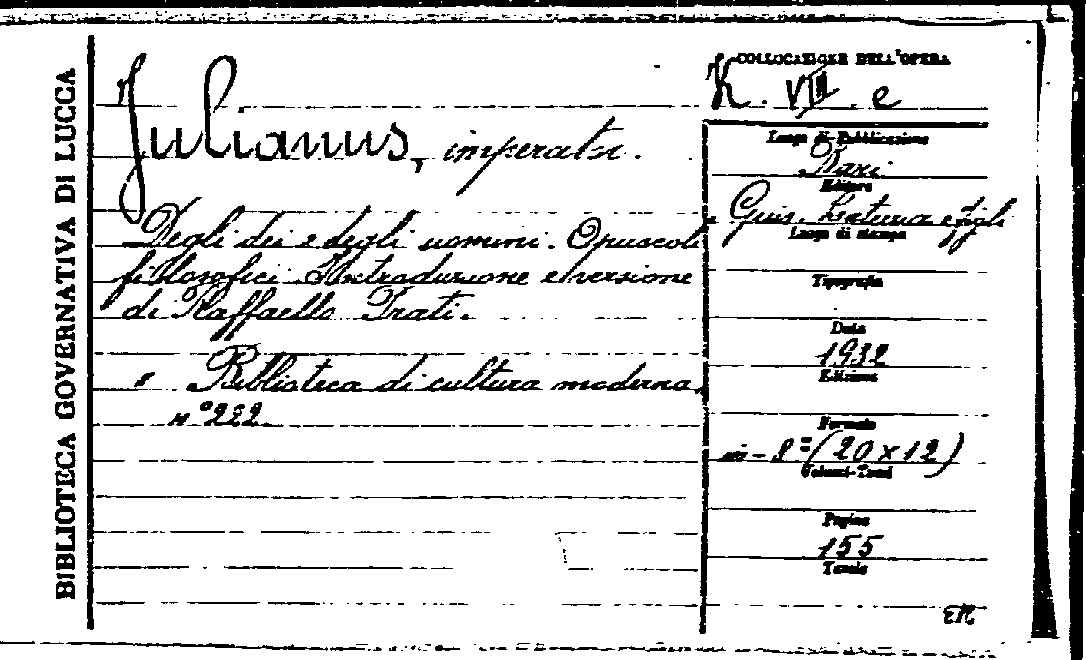 BIBLIOTECA GOVERNATIVA DI LUCCA
Julianus, imperator.
Degli dei e degli uomini. Opuscoli
filosofici. Introduzione e versione
di Raffaello Prati.
" Biblioteca di cultura moderna,
n° 222
COLLOCAZIONE DELL'OPERA
K. VIII. e
Luogo di Pubblicazione
Bari
Editore
Gius. Laterza e figli
Luogo di stampa
Tipografia
Data
1932
Edizione
Formato
in-8° (20 x 12)
Volumi-Tomi
Pagine
155
Tavole